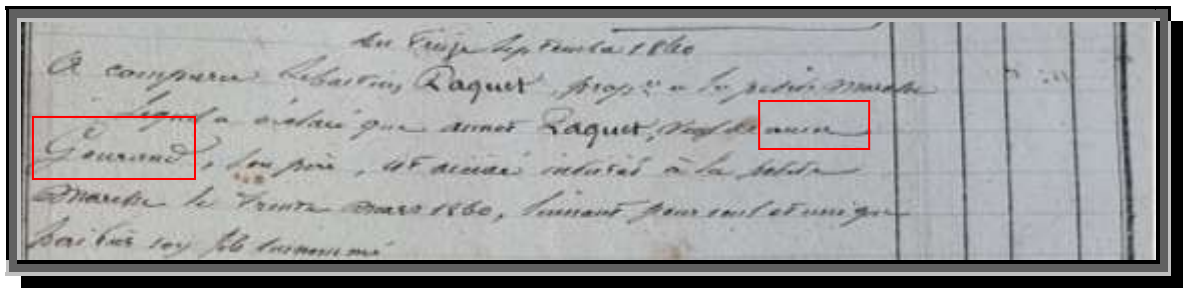 du treize Septembre 1860
a comparu Sébastien Paquet, prop.re à la petite marche
lequel a déclaré que annet Paquet, veuf de
Gourand, son père, est décédé intestat à la petite
marche le trente mars 1860, laissant pour seul et unique
héritier son fils surnommé